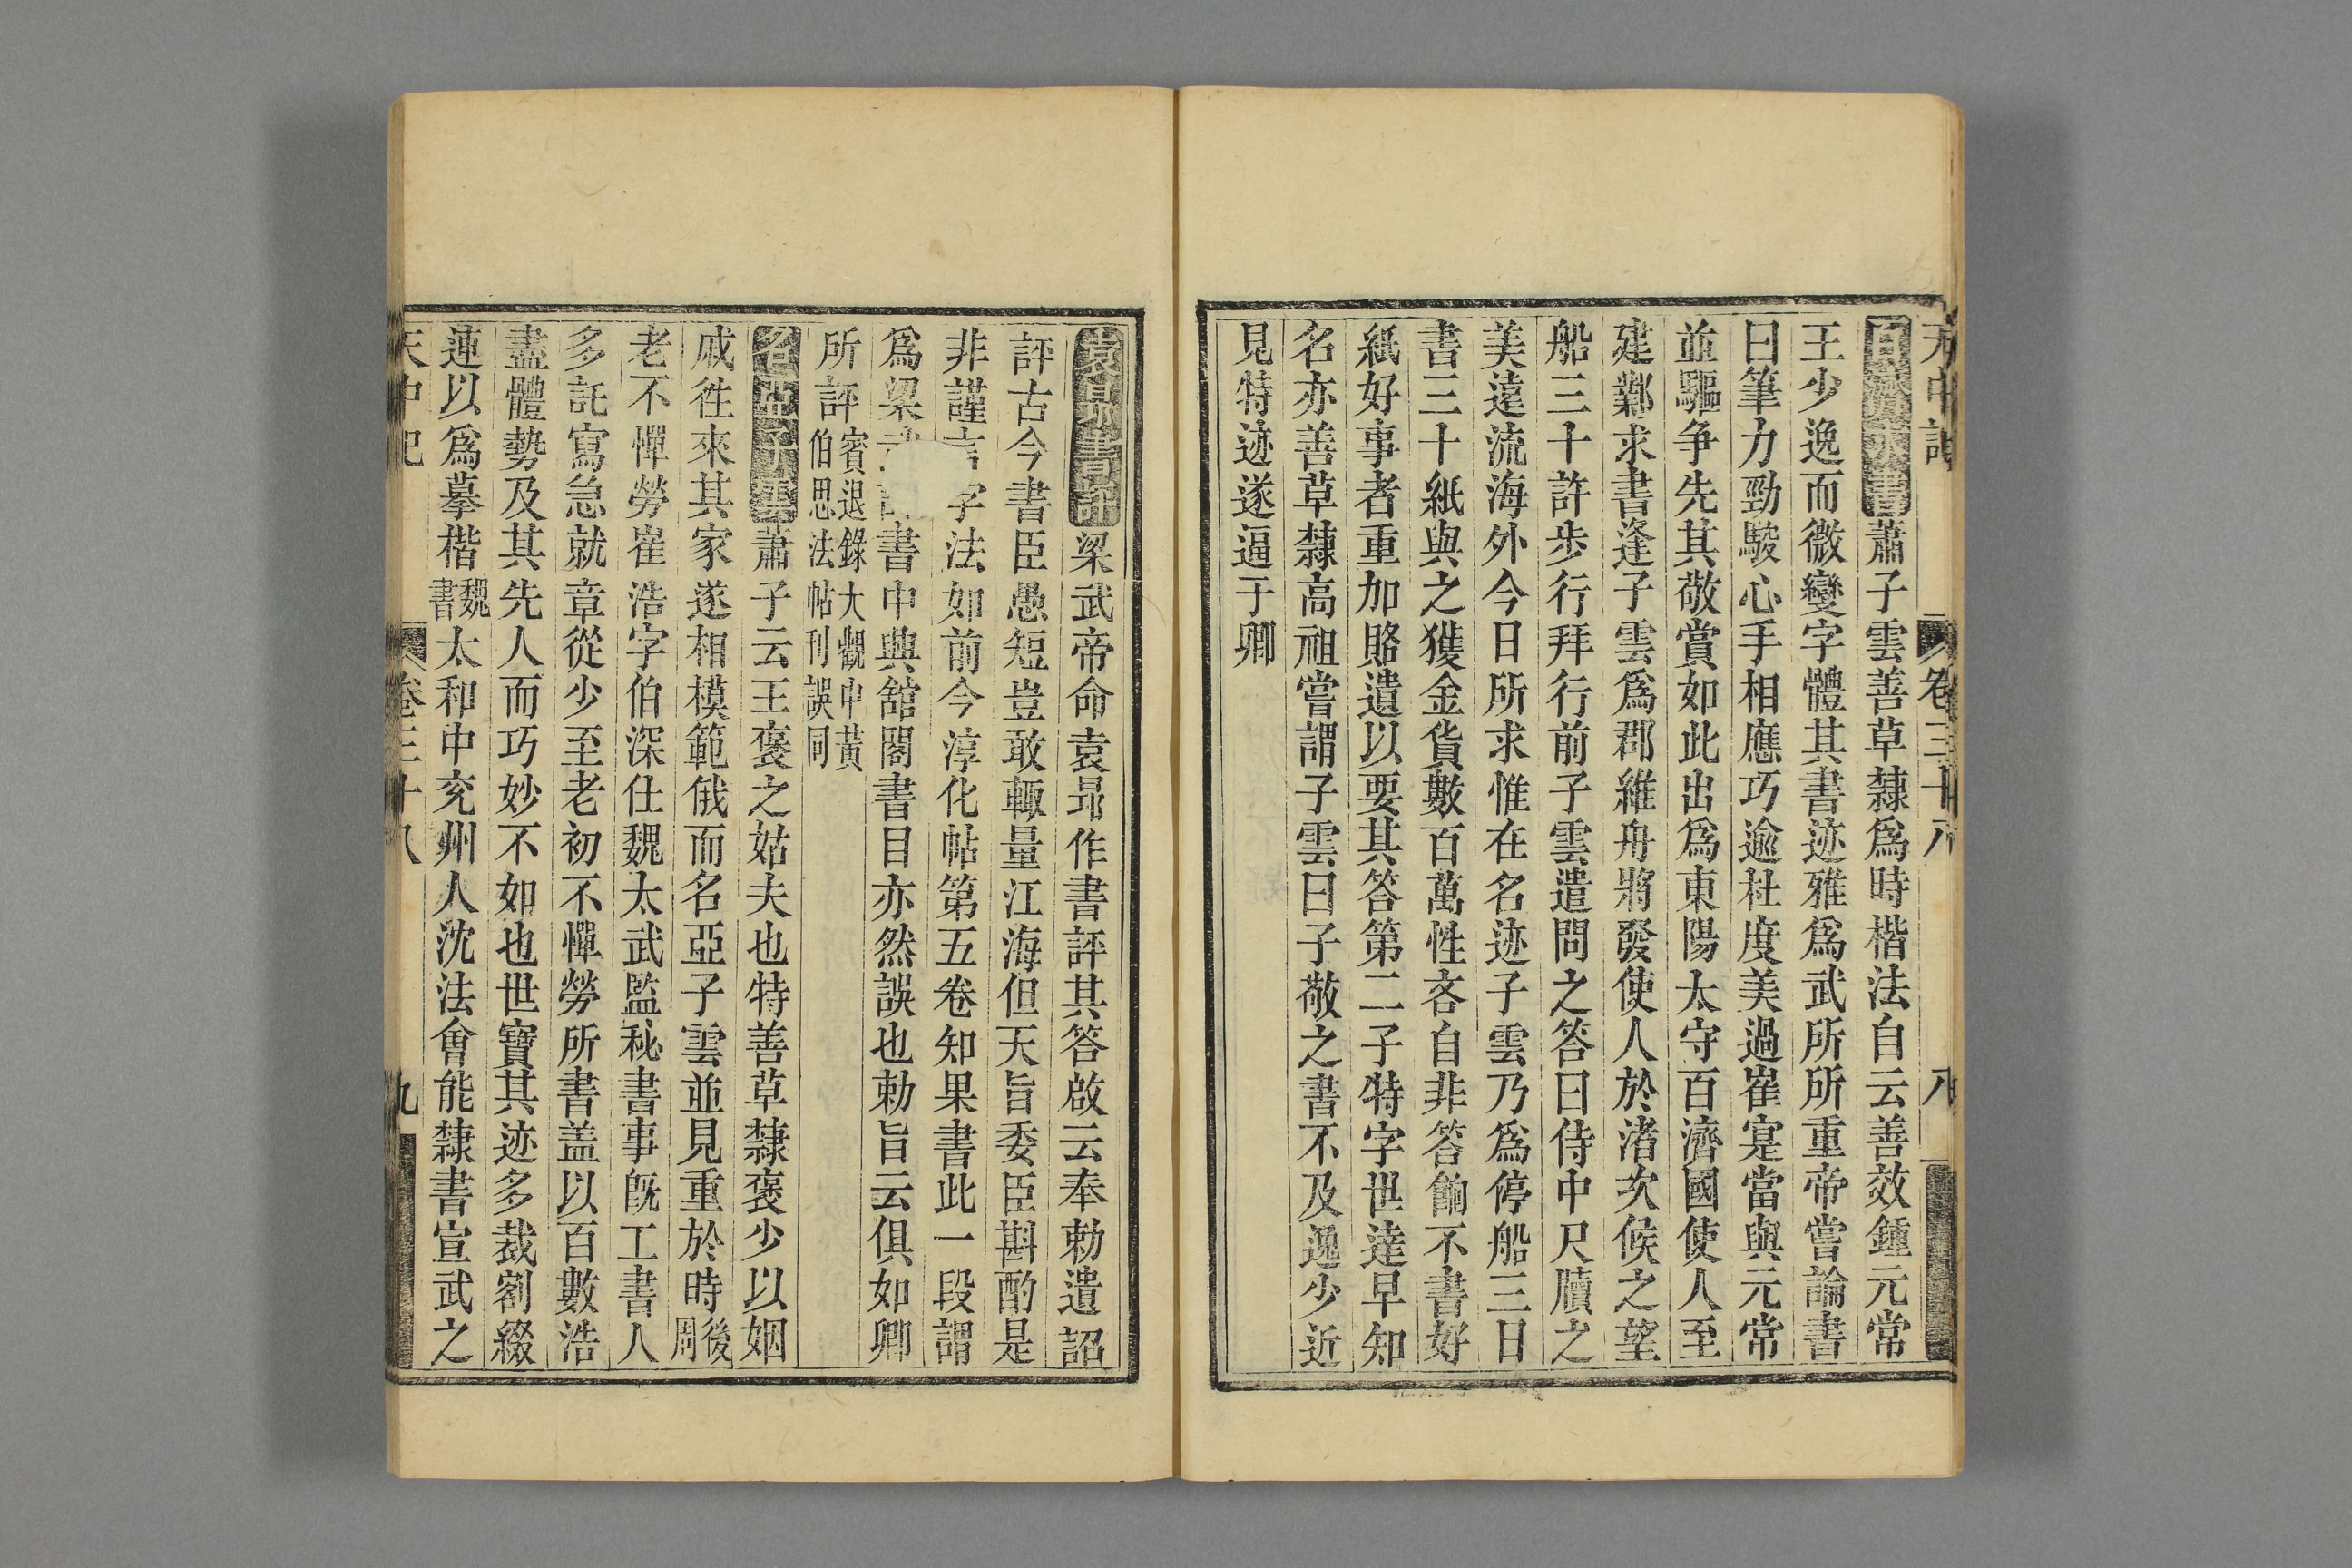 天中記 卷三十八 八
百濟求書蕭子雲善草隸爲時楷法自云善效鍾元常
王少逸而微變字體其書迹雅爲武所所重帝嘗論書
曰筆力勁駿心手相應巧逾杜度美過崔寔當與元常
並驅争先其敬賞如此出爲東陽太守百濟國使人至
建鄴求書逢子雲爲郡維舟將發使人於渚次候之望
船三十許步行拜行前子雲遣問之答曰侍中尺牘之
美遠流海外今日所求惟在名迹子雲乃爲停船三日
書三十紙與之獲金貨數百萬性吝自非答餉不書好
紙好事者重加賂遺以要其答第二子特字世達早知
名亦善草隸高祖嘗謂子雲曰子敬之書不及逸少近
見特迹遂逼于卿
袁昻書評梁武帝命袁昻作書評其答啟云奉勅遣詔
評古今書臣愚短豈敢輙量江海但天旨委臣斟酌是
非謹言字法如前今淳化帖第五卷知果書此一段謂
爲梁書中興舘閣書目亦然誤也勅旨云俱如卿
所評賓退錄大觀中黃
伯思法帖刊誤同
名亞子雲蕭子云王褒之姑夫也特善草隸褒少以姻
戚徃來其家遂相模範俄而名亞子雲並見重於時後
周
老不憚勞崔浩字伯深仕魏太武監秘書事旣工書人
多託寫急就章從少至老初不憚勞所書盖以百數浩
盡體勢及其先人而巧妙不如也世寶其迹多裁割綴
連以爲摹楷魏
書太和中兗州人沈法會能隸書宣武之
天中記 卷三十八 九